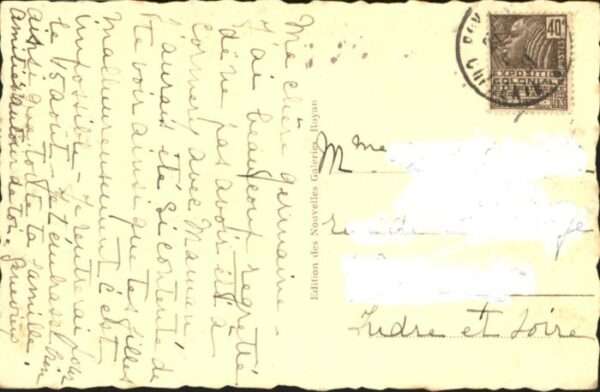 Ma chère Germaine -
J'ai beaucoup regretté
de ne pas avoir été à
Cormery avec Maman
j'aurais été si contente de
te voir ainsi que tes filles
malheureusement c'est
impossible - Je rentrerai pour
le 15 août. Je t'embrasse bien
ainsi que toute ta famille.
amitiés autour de toi.
Edition des Nouvelles Galeries, Royan
40c
POSTES
EXPOSITION
COLONIALE
Mme
Indre et Loire